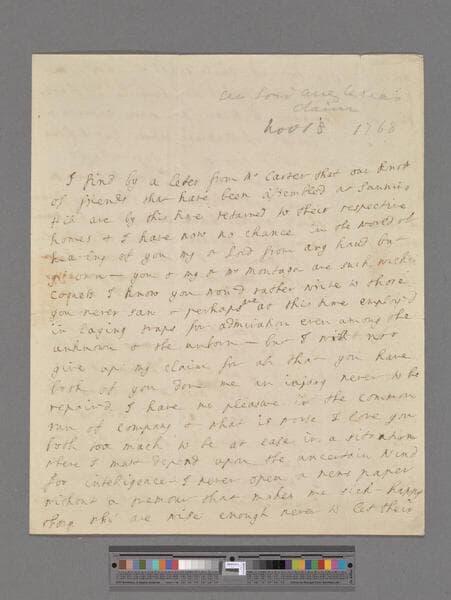 Lord
Claim
Nov 18 1768
I find by a leter from Mrs Carter that our knot
of friends that have been assembled at Sunning
Hill are by this time returned to their respective
homes & I have now no chance in the world of
hearing of you my Lord from any hand but
your own - you & Mrs Montagu are such
Coquets I know you wou'd rather write to those
you never saw & perhaps are at this time employ'd
in laying traps for admiration even among the
unknown & the unborn - but I will not
give up my claim for all that you have
both of you done me an injury never to be
repaird I have no pleasure in the common
run of company & what is worse I love you
both too much to be at ease in a situation
where I must depend upon the uncertain wind
for inteligence I never open a news paper
without a tremour that makes me sick happy
those who are wise enough never to let their